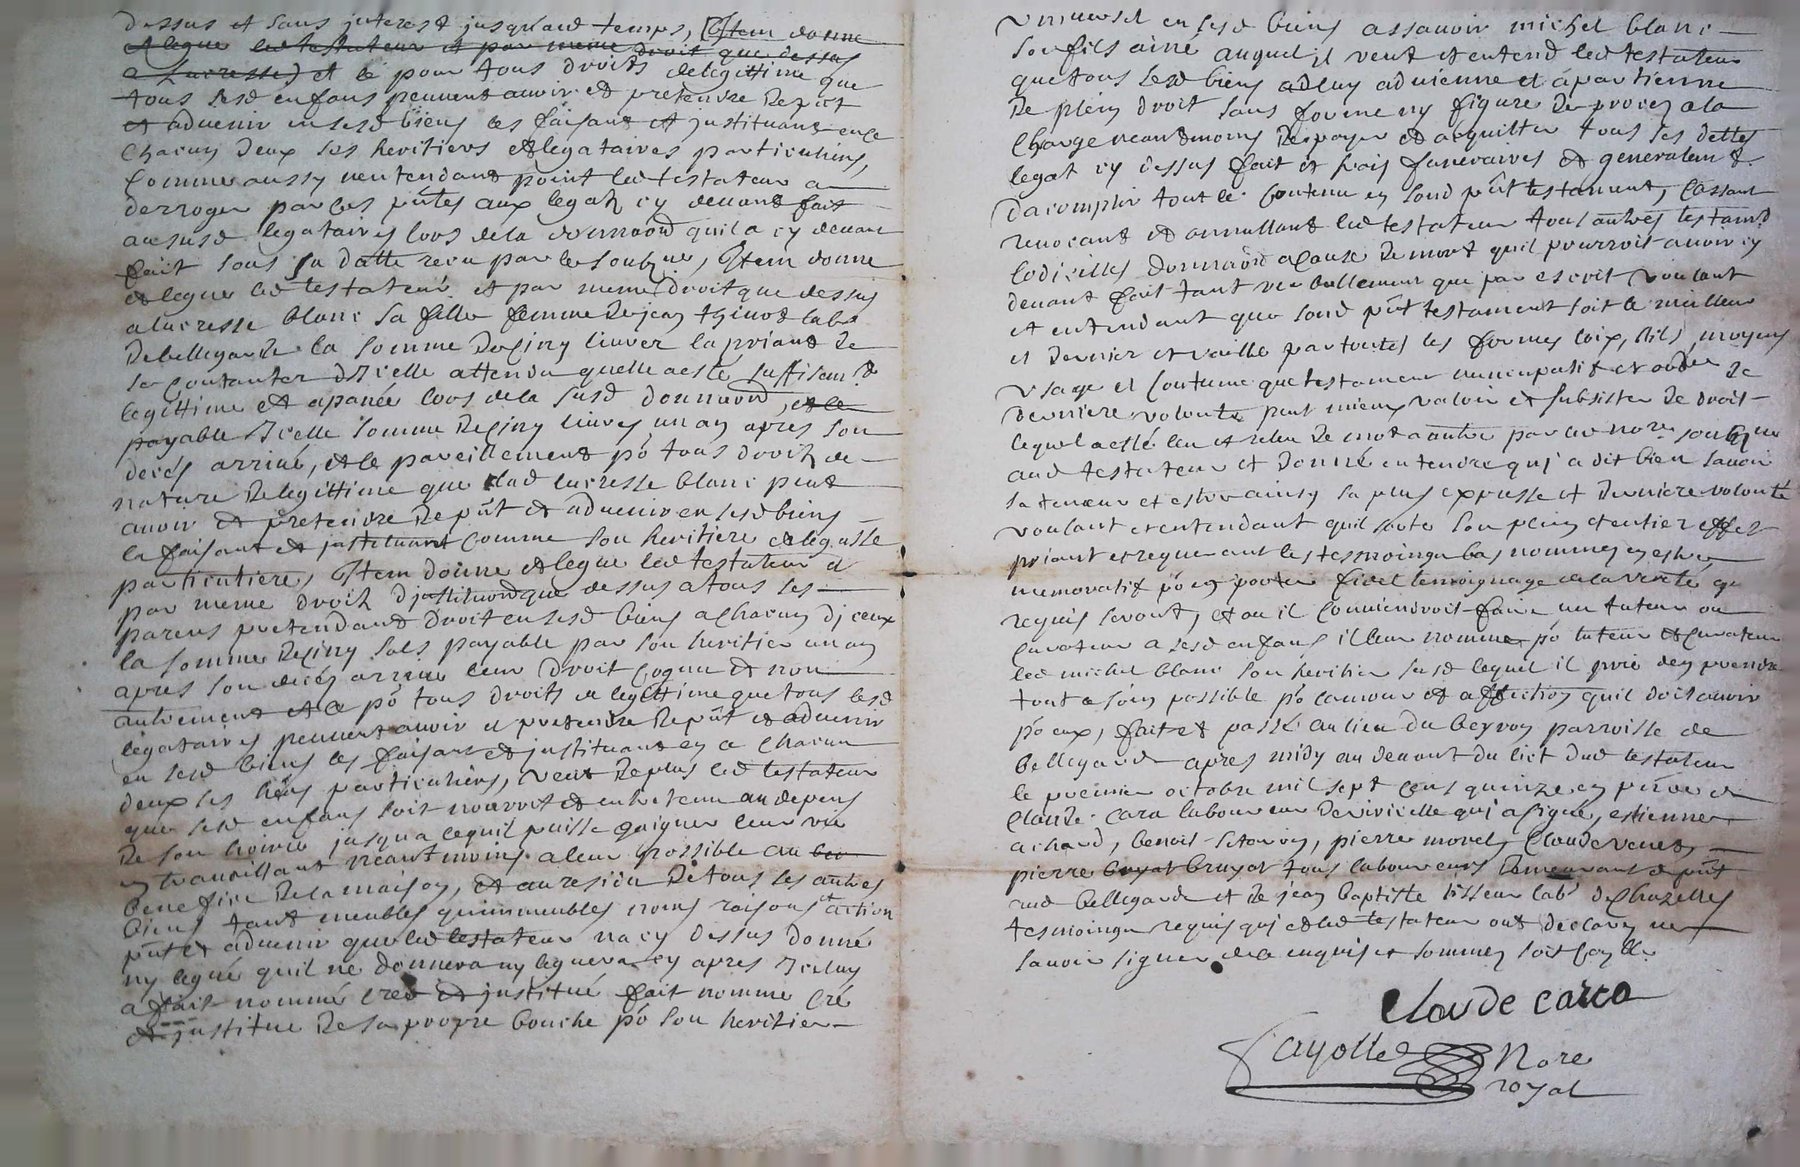 dessus et sans interest jusquaud temps, Item donne
et legue led testateur et par meme droit que dessus
a Lucresse) et ce pour tous droits de legittime que
tous sesd enfans peuvent avoir et pretendre de pnt
et advenir en sesd biens les faisant et instituant en ce
chacun deux ses heritiers et legataires particuliers,
comme aussy nentendant point led testateur a
derroger par ces pntes aux legatz cy devant fait
aususd legataires lors de la donnaon quil a cy devant
fait sous sa datte receu par le soubzne, Item donne
et legue led testateur et par meme droit que dessus
a lucresse blanc sa fille femme de jean labr
de bellegarde la somme de cinq livres la priant de
se contanter dicelle attendu quelle a esté suffisamt
legittime et apanée lors de la susd donnaon, et ce
payable icelle somme de cinq livres un an apres son
deces arrivé, et ce pareillement po tous droitz de
nature de legittime que lad lucresse blanc peut
avoir et pretendre de pnt et advenir en sesd biens
la faisant et instituant comme son heritiere et legatte
particuliere, Item donne et legue led testateur et
par meme droit dinstituon que dessus a tous ses
parens pretendant droit en sesd biens a chacun diceux
la somme de cinq sols payable par son heritier un an
apres son deces arrivé leur droit cognu et non
autrement et ce po tous droits de legittime que tous lesd
legataires peuvent avoir et pretendre de pnt et advenir
en sesd biens les faisant et instituant en ce chacun
deux ses hers particuliers, veut de plus led testateur
que sesd enfans soit nourrit et entretenu au depens
de son hoirie jusqua ce quil puisse gaigner leur vie
en travaillant neantmoins a leur possible au
benefice de la maison, et au residu de tous ses autres
biens tant meubles quimmeubles noms raisons et action
pnt et advenir que led testateur na cy dessus donné
ny legué quil ne donnera ny leguera cy apres Iceluy
a fait nommé creé et institué fait nomme cré
et institue de sa propre bouche po son heritier
universel en sesd biens assavoir michel blanc
son fils ainé auquel il veut et entend led testateur
que tous sesd biens adluy advienne et apartienne
de plein droit sans forme ny figure de proces a la
charge neantmoins de payer et acquitter tous ses dettes
legat cy dessus fait et frais funeraires et generalemt
dacomplir tout le contenu en sond pnt testament, cassant
revocant et annullant led testateur tous autres testamt
codicilles donnaon a cause de mort quil pourroit avoir cy
devant fait tant verballement que par escrit voulant
et entendant que sond pnt testament soit le meilleur
et dernier et vaille par toutes les formes loix, stil, moyens
usage et coutume que testament nuncupatif et ordre de
derniere volonté peut mieux valoir et subsister de droit
lequel a esté leu et releu de mot a autre par led nore soubzne
aud testateur et donné entendre qui a dit bien savoir
sa teneur et estre ainsy sa plus expresse et derniere volonté
voulant et entendant quil sorte son plein et entier effet
priant et requerant les tesmoings bas nommez en estre
memoratif po en porter fidel temoignage de la verité que
requis seront, et ou il conviendroit faire un tuteur ou
curateur a sesd enfans il leur nomme po tuteur et curateur
led michel blanc son heritier susd lequel il prie den prendre
tout le soin possible po lamour et affection quil doit avoir
po eux, fait et passé au lieu du beyron parroisse de
bellegarde apres midy au devant du lict dud testateur
le premier octobre mil sept cens quinze en pnce de
claude cara laboureur de rivirelle qui a signé, estienne
achard, benoit, pierre morel, claude venet,
pierre bruyat tous laboureurs demeurant de pnt
aud bellegarde et de jean baptiste tisseur labr de chazelles
tesmoings requis qui et led testateur ont declaré ne
savoir signer de ce enquis et sommez soit coylle
claude cara
fayolle Nore
royal